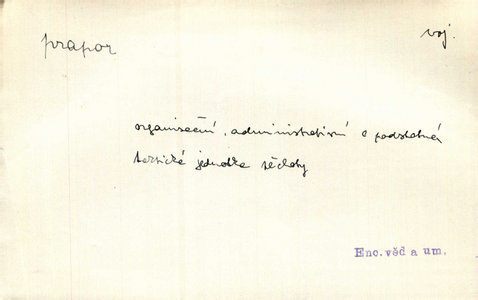 prapor
voj.
organisační, administrativní a podstatná
taktické jednotka pěchoty
Enc. věd a um.